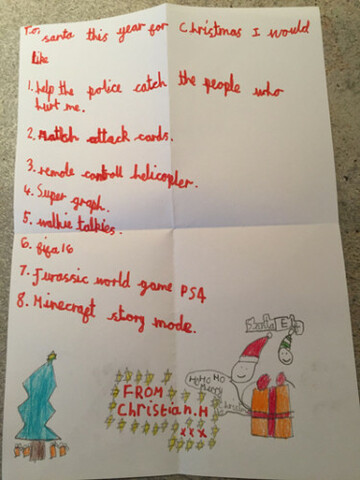 To, santa this year for Christmas I would
like
1. help the police catch the people who
hurt me.
2. Match attack cards.
3. remote controll helicopter.
4. Super graph.
5. walkie talkies.
6. fifa 16
7. Jurassic world game PS4
8. Minecraft story mode.
Santa
HoHoHo
Merry
FROM
Christian.H
xxx